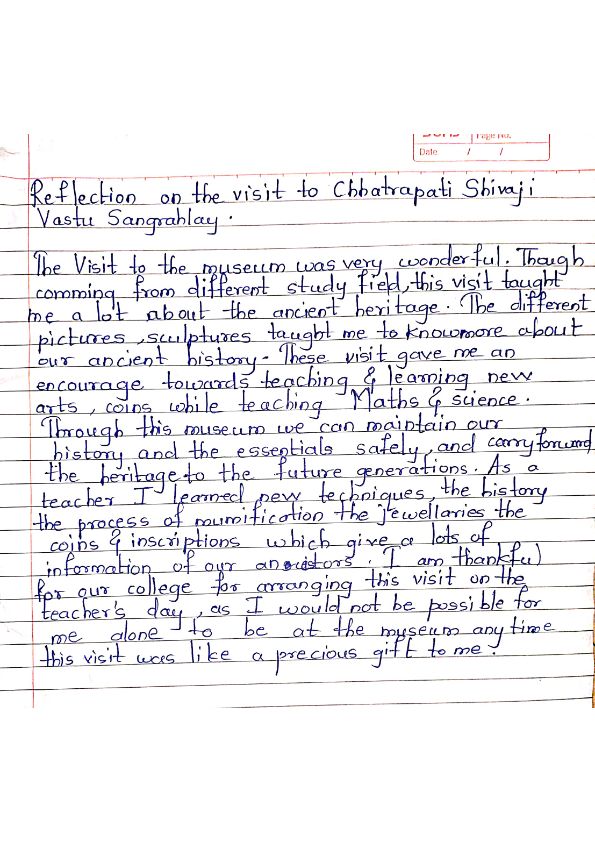 Page No.
Date / /
Reflection on the visit to Chhatrapati Shivaji
Vastu Sangrahlay.
The Visit to the museum was very wonderful. Though
comming from different study field, this visit taught
me a lot about the ancient heritage. The different
pictures, sculptures taught me to know more about
our ancient history. These visit gave me an
encourage towards teaching & learning new
arts, coins while teaching Maths & science.
Through this museum we can maintain our
history and the essentials safely, and carry forward
the heritage to the future generations. As a
teacher I learned new techniques, the history
the process of mumification the jewellaries the
coins & inscriptions which give a lots of
information of our . I am thankful
for our college for arranging this visit on the
teacher's day, as I would not be possible for
me alone to be at the museum anytime
this visit was like a precious gift to me.